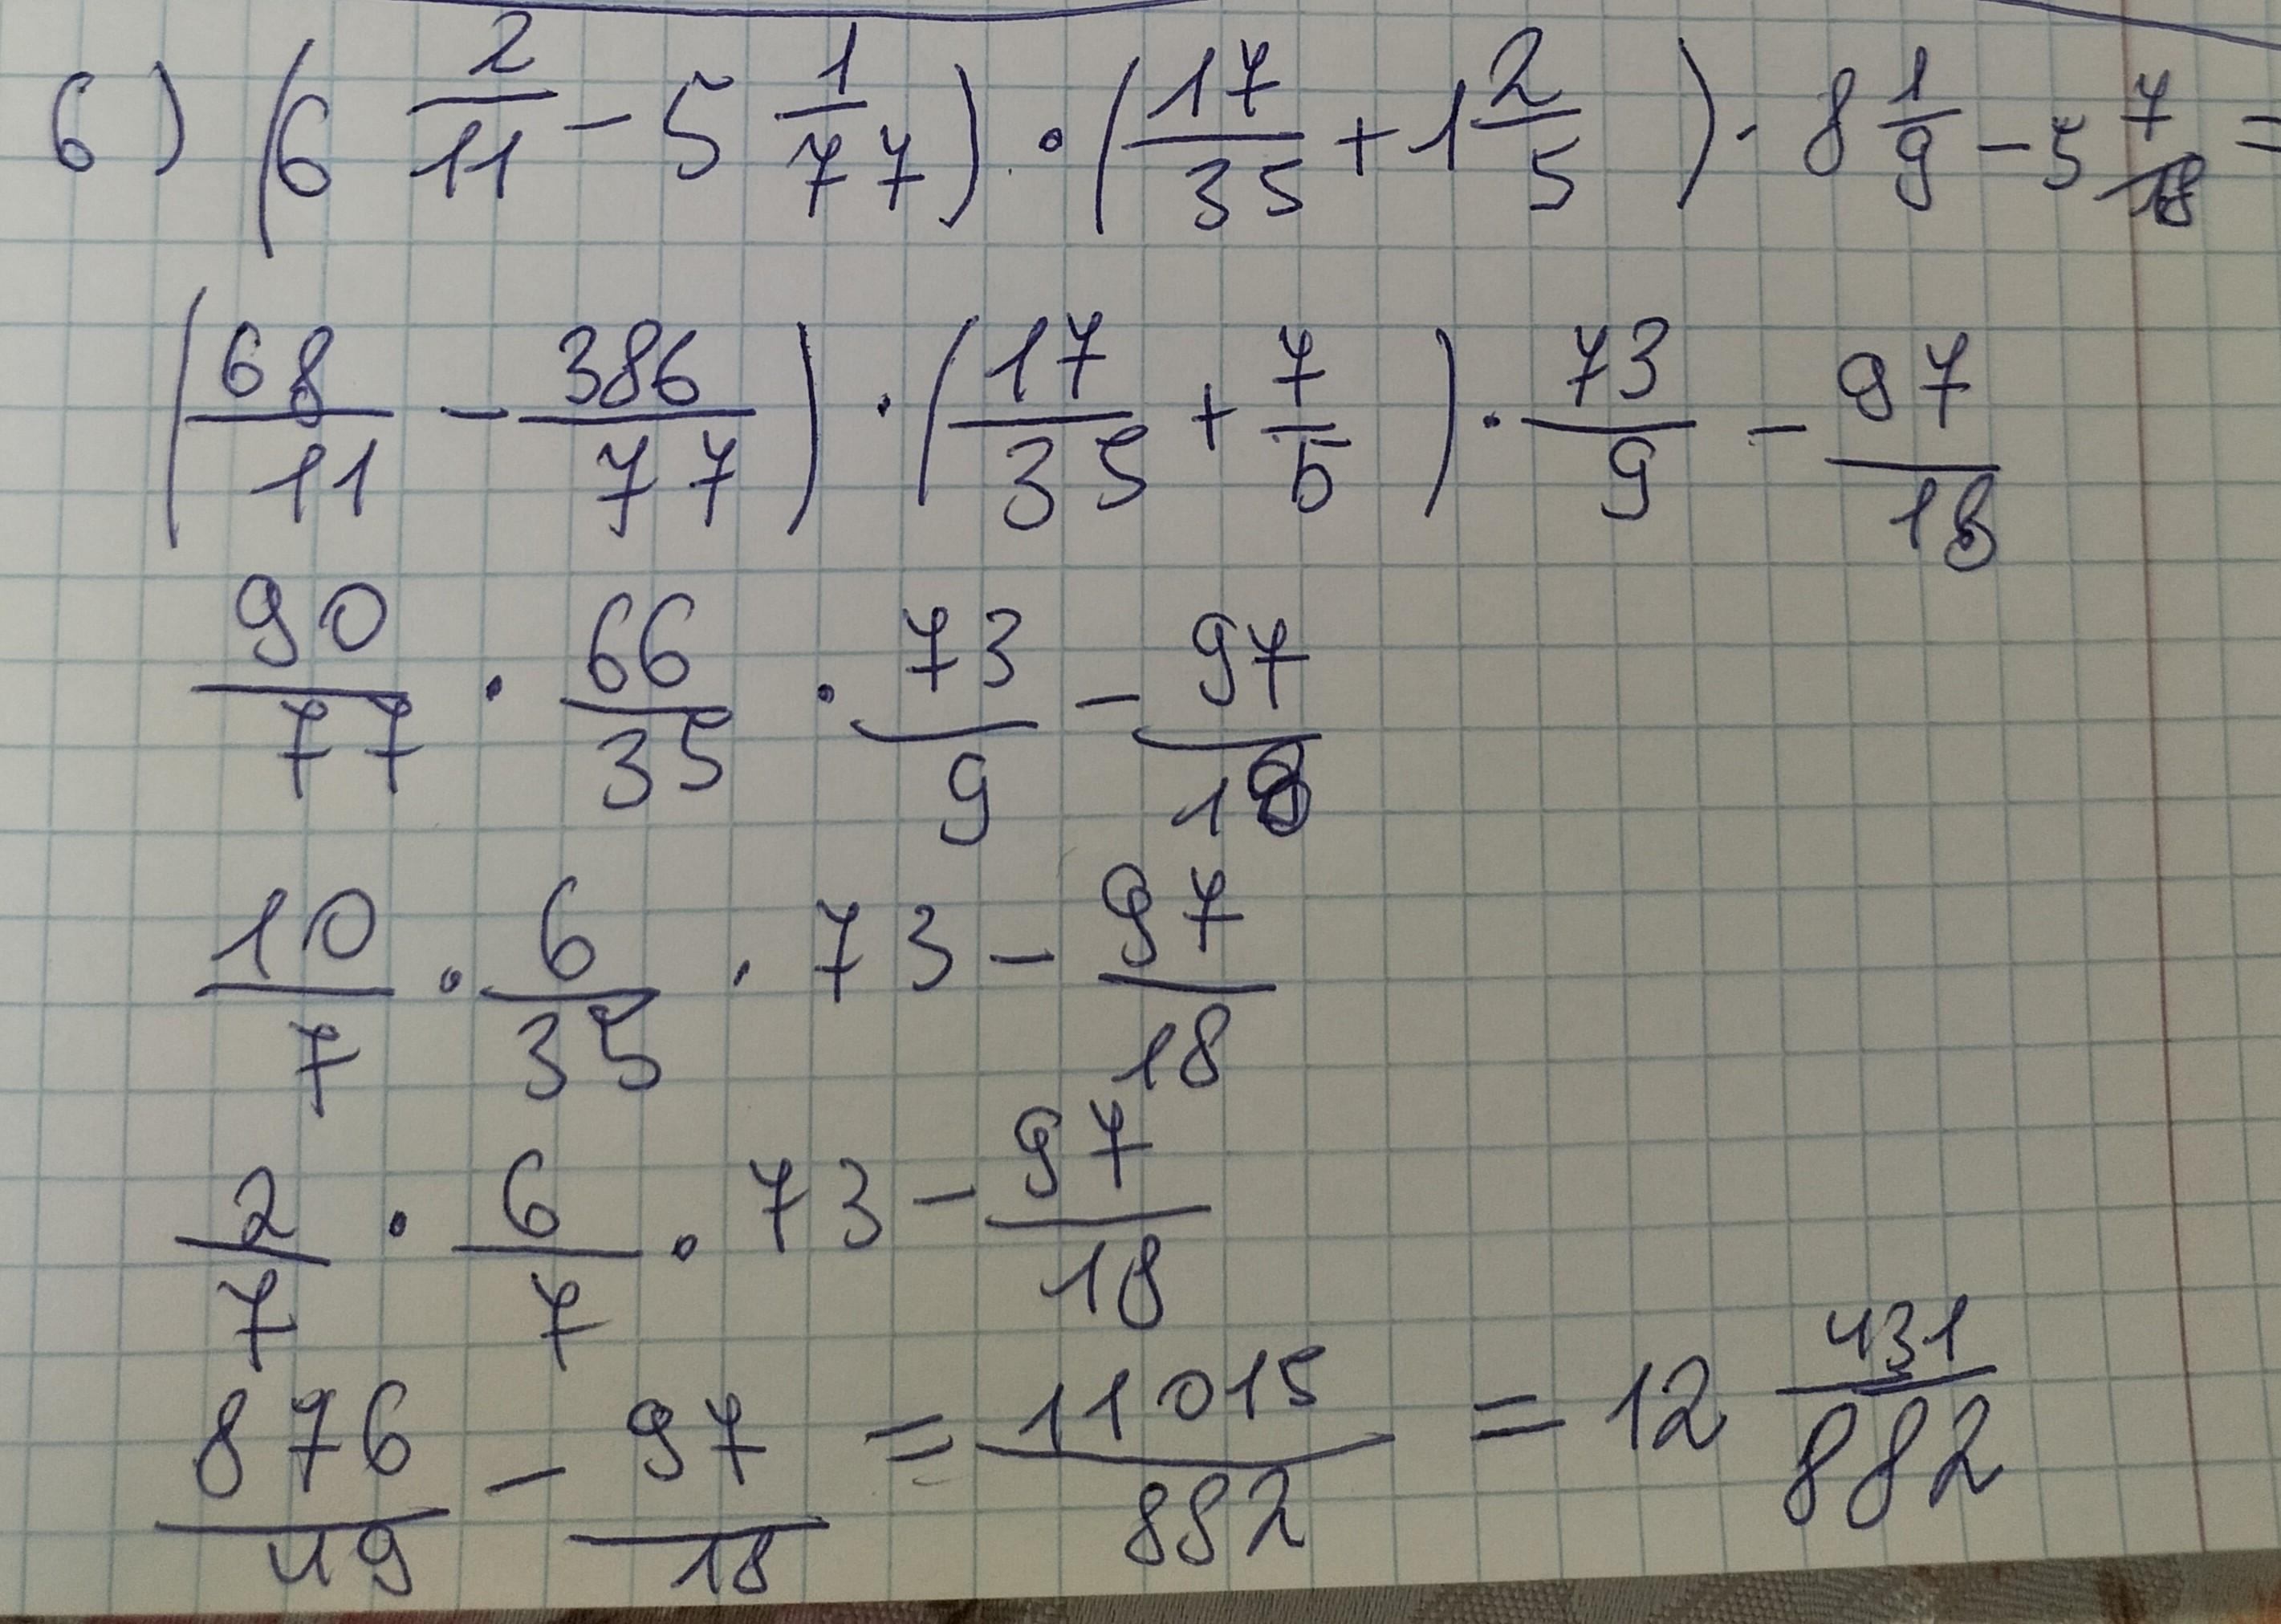 6) (6 2/11 - 5 1/77) · (17/35 + 1 2/5) · 8 1/9 - 5 7/18 =
(68/11 - 386/77) · (17/35 + 7/5) · 73/9 - 97/18
90/77 · 66/35 · 73/9 - 97/18
10/7 · 6/35 · 73 - 97/18
2/7 · 6/7 · 73 - 97/18
876/49 - 97/18 = 11015/882 = 12 431/882